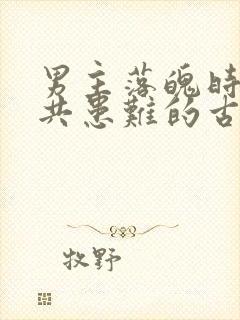 男主落魄时
共患难的古
牧野